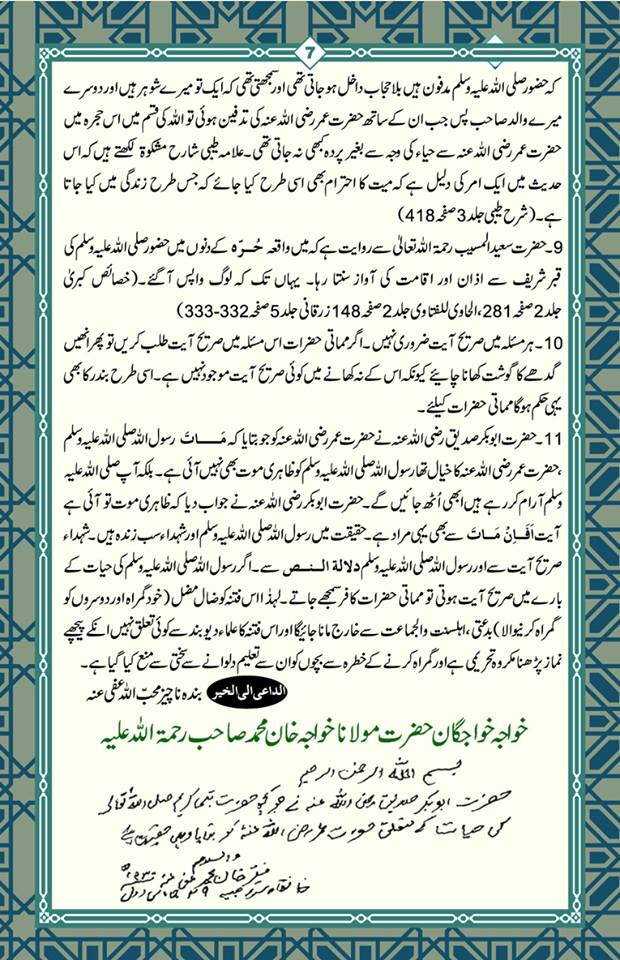 7
کہ حضور صلی اللہ علیہ وسلم مدفون ہیں بلا حجاب داخل ہو جاتی تھی اور سمجھتی تھی کہ ایک تو میرے شوہر ہیں اور دوسرے
میرے والد صاحب پس جب ان کے ساتھ حضرت عمر رضی اللہ عنہ کی تدفین ہوئی تو اللہ کی قسم میں اس حجرہ میں
حضرت عمر رضی اللہ عنہ سے حیاء کی وجہ سے بغیر پردہ کبھی نہ جاتی تھی۔ علامہ طیبی شارح مشکوۃ لکھتے ہیں کہ اس
حدیث میں ایک امر کی دلیل ہے کہ میت کا احترام بھی اسی طرح کیا جائے کہ جس طرح زندگی میں کیا جاتا
ہے۔ (شرح طیبی جلد 3 صفحہ 418)
9۔ حضرت سعید المسیب رحمۃ اللہ تعالیٰ سے روایت ہے کہ میں واقعہ حُرّہ کے دنوں میں حضور صلی اللہ علیہ وسلم کی
قبر شریف سے اذان اور اقامت کی آواز سنتا رہا۔ یہاں تک کہ لوگ واپس آگئے۔ (خصائص کبریٰ
جلد 2 صفحہ 281، الحاوی للفتاوی جلد 2 صفحہ 148 زرقانی جلد 5 صفحہ 332-333)
10۔ ہر مسئلہ میں صریح آیت ضروری نہیں۔ اگر مماتی حضرات اس مسئلہ میں صریح آیت طلب کریں تو پھر انھیں
گدھے کا گوشت کھانا چاہئے کیونکہ اس کے نہ کھانے میں کوئی صریح آیت موجود نہیں ہے۔ اسی طرح بندر کا بھی
یہی حکم ہوگا مماتی حضرات کیلئے۔
11۔ حضرت ابوبکر صدیق رضی اللہ عنہ نے حضرت عمر رضی اللہ عنہ کو جو بتایا کہ مَــاتَ رسول اللہ صلی اللہ علیہ وسلم
، حضرت عمر رضی اللہ عنہ کا خیال تھا رسول اللہ صلی اللہ علیہ وسلم کو ظاہری موت بھی نہیں آئی ہے۔ بلکہ آپ صلی اللہ علیہ
وسلم آرام کر رہے ہیں ابھی اُٹھ جائیں گے۔ حضرت ابوبکر رضی اللہ عنہ نے جواب دیا کہ ظاہری موت تو آئی ہے
آیت اَفَاِنْ مَاتَ سے بھی یہی مراد ہے۔ حقیقت میں رسول اللہ صلی اللہ علیہ وسلم اور شہداء سب زندہ ہیں۔ شہداء
صریح آیت سے اور رسول اللہ صلی اللہ علیہ وسلم دلالة النــص سے۔ اگر رسول اللہ صلی اللہ علیہ وسلم کی حیات کے
بارے میں صریح آیت ہوتی تو مماتی حضرات کافر سمجھے جاتے۔ لہذٰا اس فتنہ کو ضال مضل (خود گمراہ اور دوسروں کو
گمراہ کرنیوالا) بدعتی، اہلسنت والجماعت سے خارج مانا جائیگا اور اس فتنہ کا علماء دیوبند سے کوئی تعلق نہیں انکے پیچھے
نماز پڑھنا مکروہ تحریمی ہے اور گمراہ کرنے کے خطرہ سے بچوں کو ان سے تعلیم دلوانے سے سختی سے منع کیا گیا ہے۔
الداعی الی الخیر بندہ ناچیز محب اللہ عفی عنہ
خواجہ خواجگان حضرت مولانا خواجہ خان محمد صاحب رحمۃ اللہ علیہ
بسم اللہ الرحمٰن الرحیم
حضرت ابوبکر صدیق رضی اللہ عنہ نے جو کچھ حضرت نبی کریم صلی اللہ تعالیٰ
کی حیات کے متعلق حضرت عمر رضی اللہ عنہ کو بتایا وہی
والسلام
فقیر خان محمد عفی عنہ
خانقاہ سراجیہ